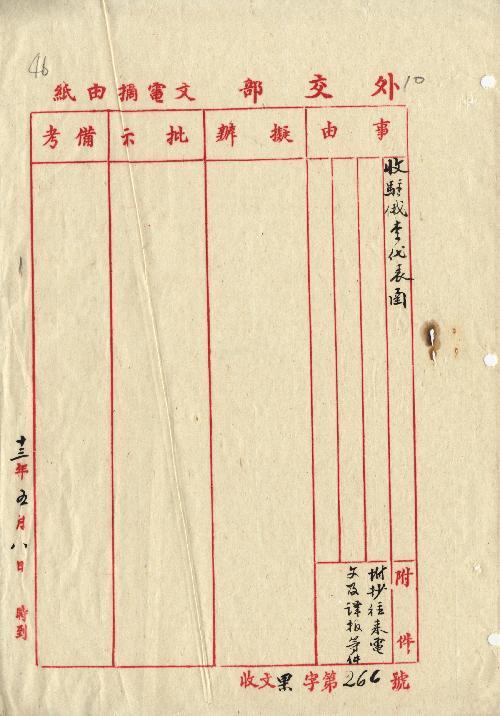 46
10
外交部 文電摘由紙
事由
擬辦
批示
備考
收駐俄李代表函
附件
附抄往來電
文及譯報等件
收文果字第266號
十三年五月八日 時到